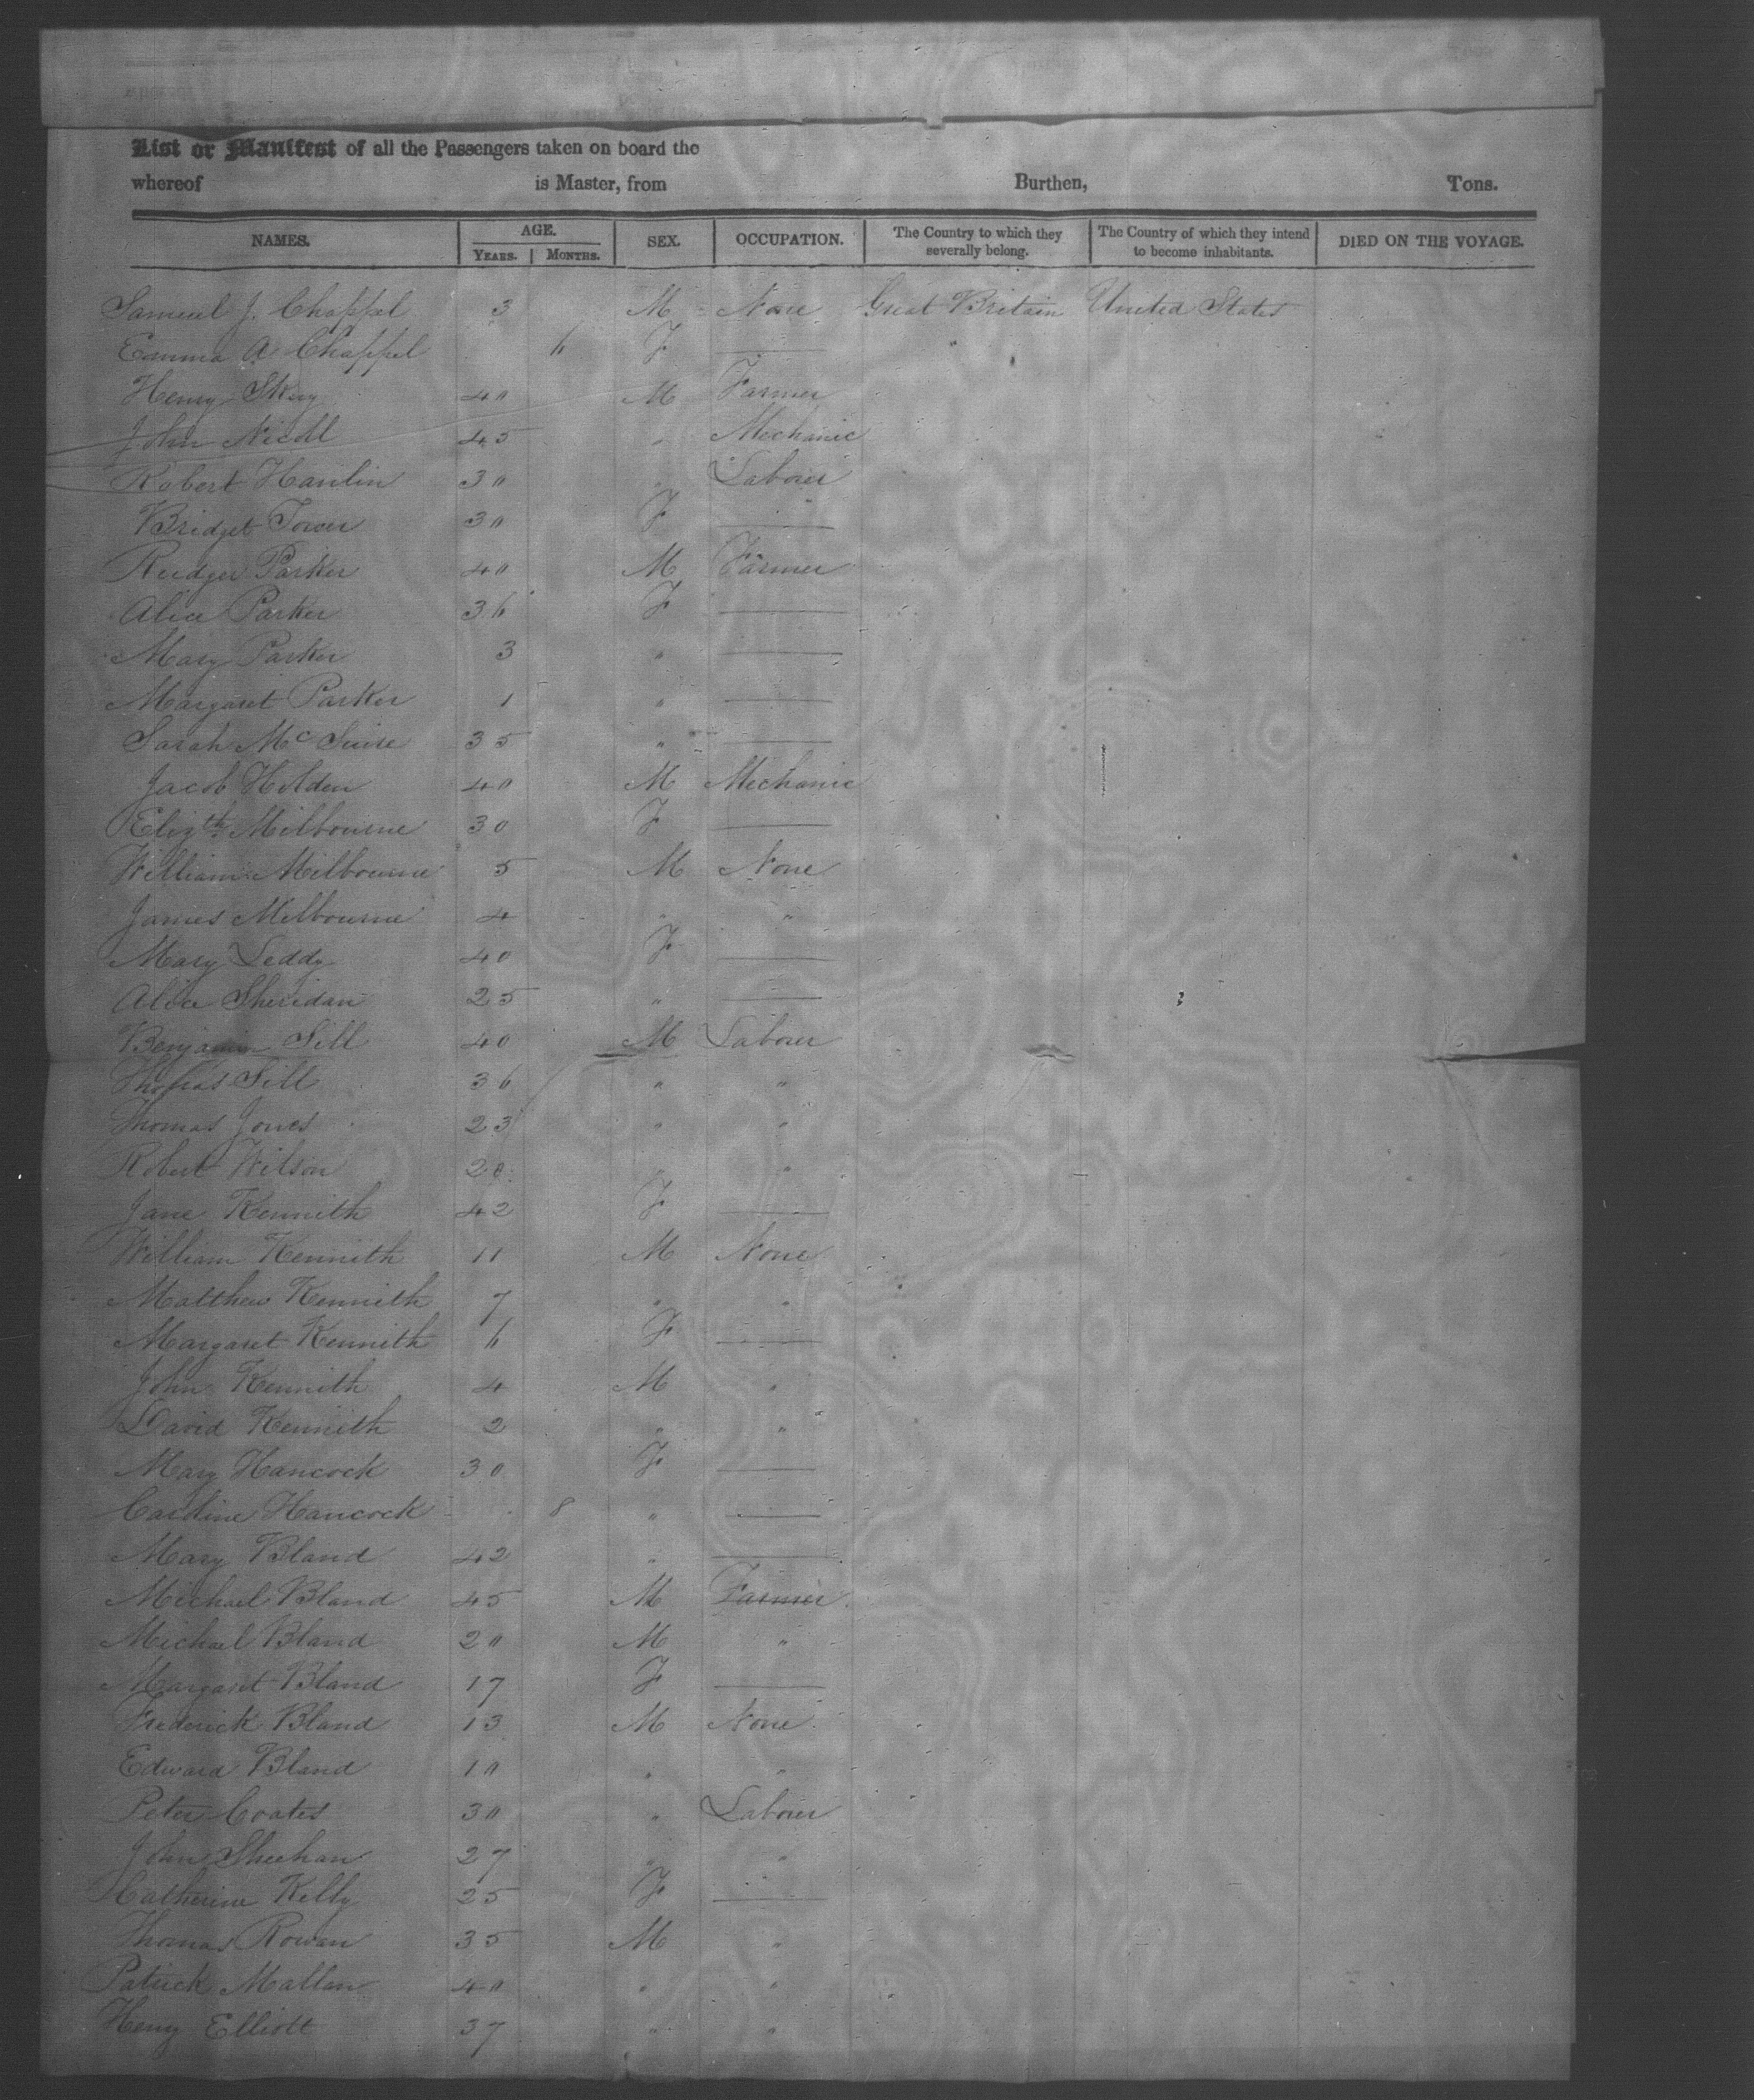 List or Manifest of all the Passengers taken on board the
whereof is Master, from Burthen, Tons.
NAMES. AGE. SEX. OCCUPATION. The Country to which they severally belong. The Country of which they intend to become inhabitants. DIED ON THE VOYAGE.
YEARS. MONTHS.
Samuel J. Chappel 3 M None Great Britain United States
Emma A Chappel 6 F — "
Henry 40 M Farmer
John Nicoll 45 " Mechanic
Robert Hanlin 30 " Laborer
Bridget 30 F —
Rudger Parker 40 M Farmer
Alice Parker 36 F —
Mary Parker 3 " —
Margaret Parker 1 " —
Sarah Mc 35 " —
Jacob Holden 40 M Mechanic
Elizth Milbourne 30 F —
William Milbourne 5 M None
James Milbourne 4 " "
Mary Leddy 40 F —
Alice Sheridan 25 " —
Benjamin Sill 40 M Laborer
Thomas Sill 36 " "
Thomas Jones 23 " "
Robert Wilson 20 " "
Jane Kennith 42 F —
William Kennith 11 M None
Matthew Kennith 7 " "
Margaret Kennith 6 F —
John Kennith 4 M "
David Kennith 2 " "
Mary Hancock 30 F —
Caroline Hancock 8 " —
Mary Bland 42 " —
Michael Bland 45 M Farmer
Michael Bland 20 M "
Margaret Bland 17 F —
Frederick Bland 13 M None
Edward Bland 10 " "
Peter Coates 30 " Laborer
John Sheehan 27 " "
Catherine Kelly 25 F —
Thomas Rowan 35 M "
Patrick Mallon 40 " "
Henry Elliott 37 " "